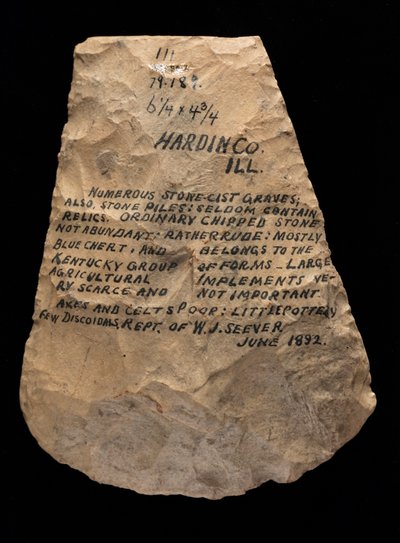 111
79.189.
6 1/4 x 4 3/4
HARDIN CO.
ILL.
NUMEROUS STONE-CIST GRAVES;
ALSO, STONE PILES: SELDOM CONTAIN
RELICS. ORDINARY CHIPPED STONE
NOT ABUNDANT: RATHER RUDE: MOSTLY
BLUE CHERT, AND BELONGS TO THE
KENTUCKY GROUP OF FORMS - LARGE
AGRICULTURAL IMPLEMENTS VE-
RY SCARCE AND NOT IMPORTANT
AXES AND CELTS POOR: LITTLE POTTERY
FEW DISCOIDALS. REPT. OF W. J. SEEVER
JUNE 1892.